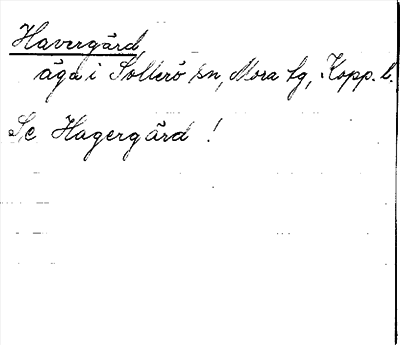 Havergård,
äga i Sollerö sn, Mora tg, Kopp. l.
Se Hagergård !